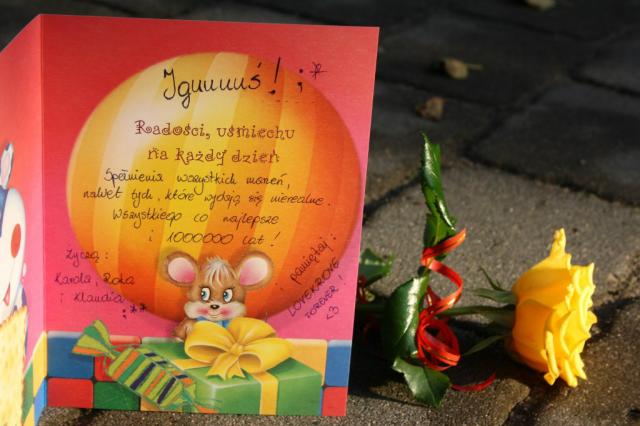 Iguuuuś! ;*
Radości, uśmiechu
na każdy dzień
Spełnienia wszystkich marzeń,
nawet tych, które wydają się nierealne.
Wszystkiego co najlepsze
i 1000000 lat!
Życzą:
Karola, Roka
i Klaudia **
i pamiętaj:
FOREVER!
<3